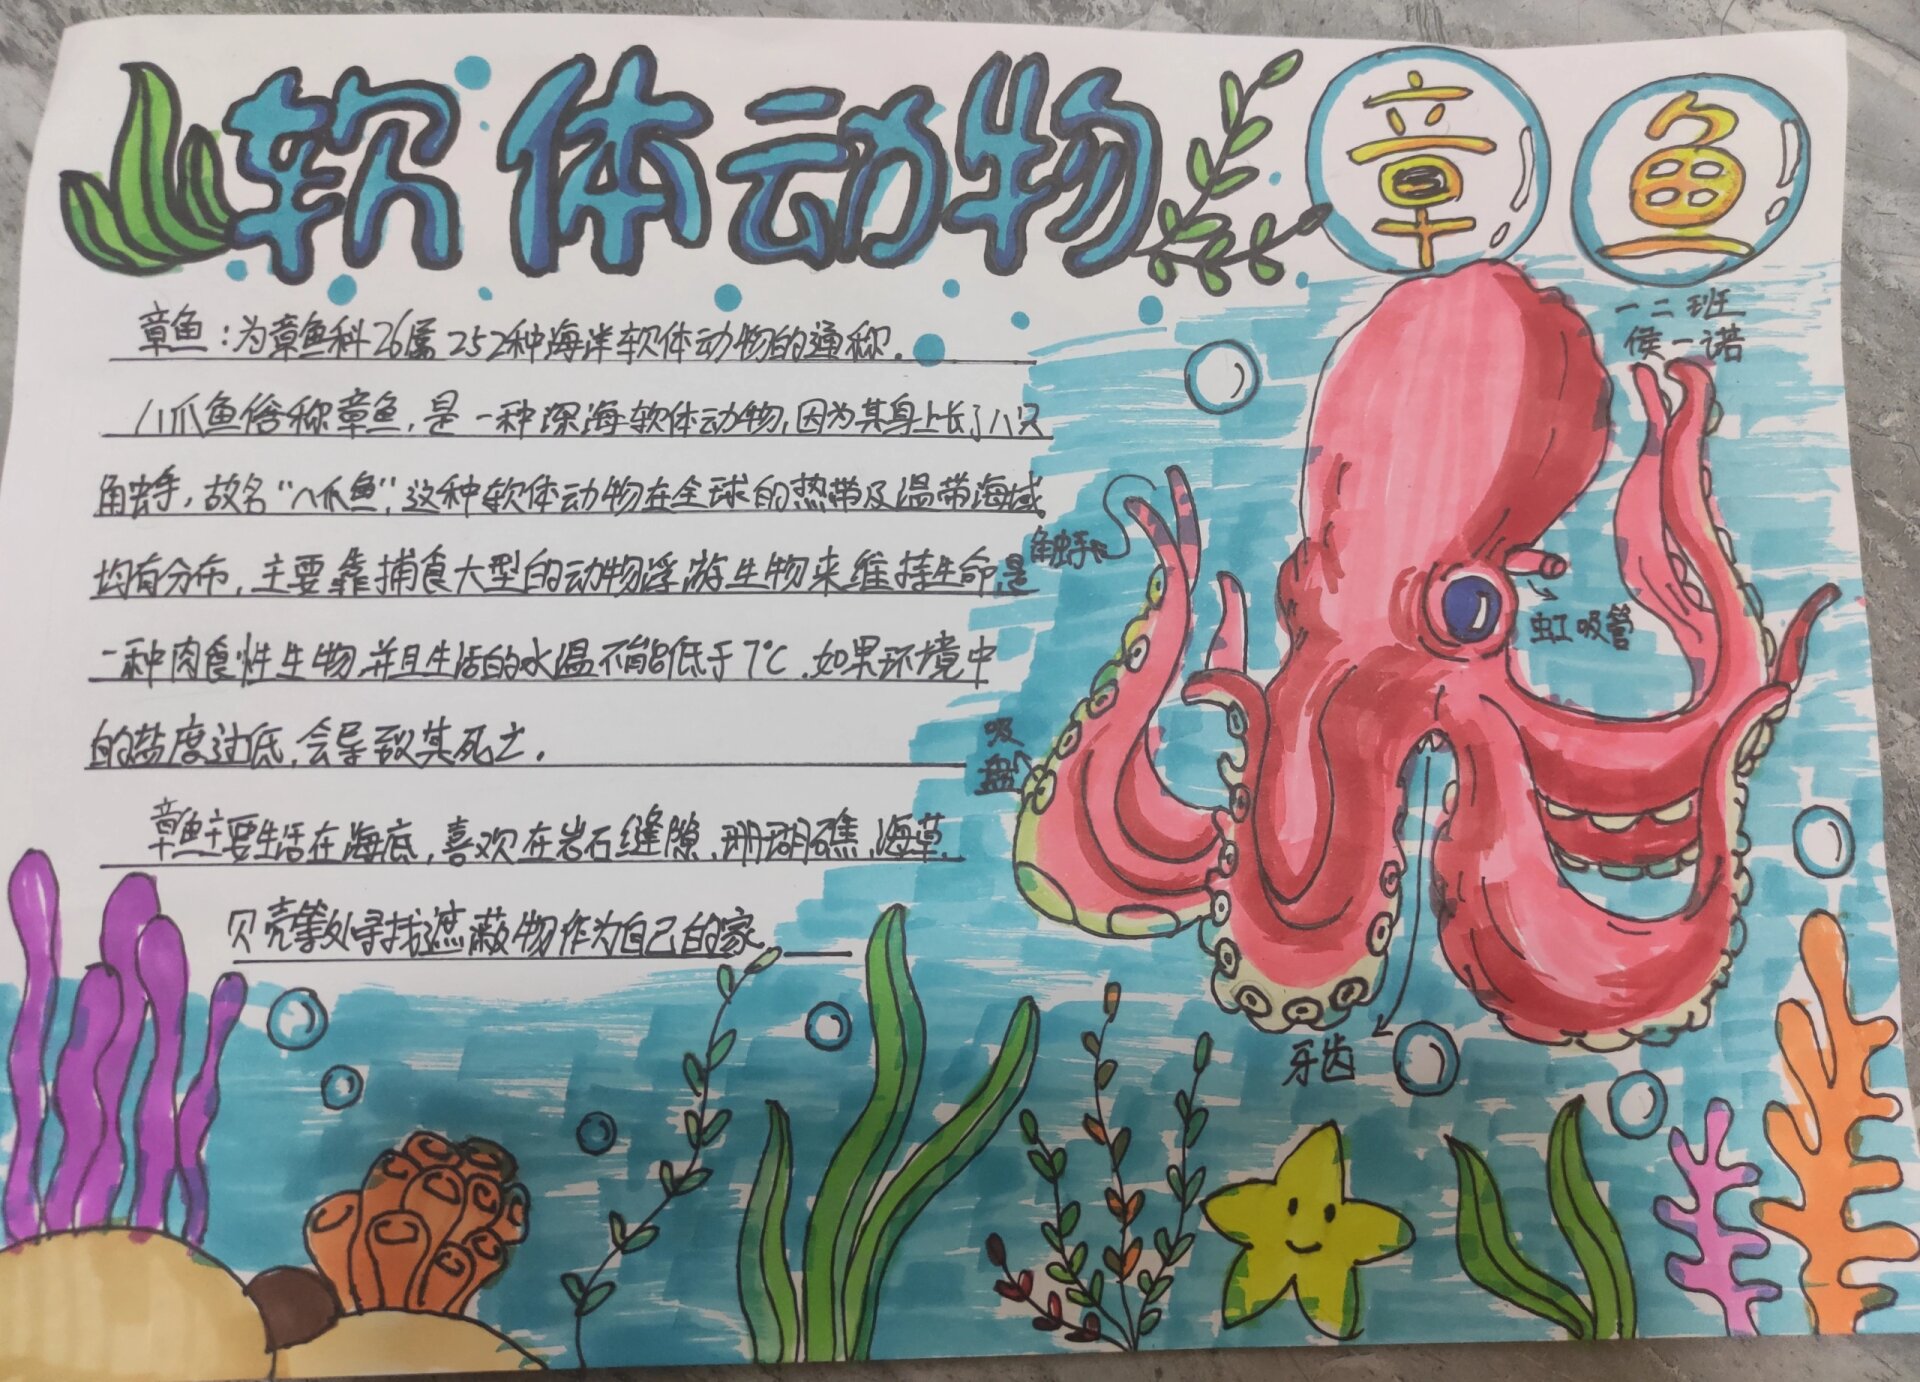 软体动物
章鱼
一二班
侯一诺
章鱼:为章鱼科26属252种海洋软体动物的通称.
八爪鱼俗称章鱼,是一种深海软体动物,因为其身上长了八只
触手,故名“八爪鱼”,这种软体动物在全球的热带及温带海域
均有分布,主要靠捕食大型的动物浮游生物来维持生命,是
一种肉食性生物,并且生活的水温不能低于7℃.如果环境中
的盐度过低,会导致其死亡.
章鱼主要生活在海底,喜欢在岩石缝隙、珊瑚礁、海草、
贝壳等处寻找遮蔽物作为自己的家
触手
虹吸管
吸盘
牙齿